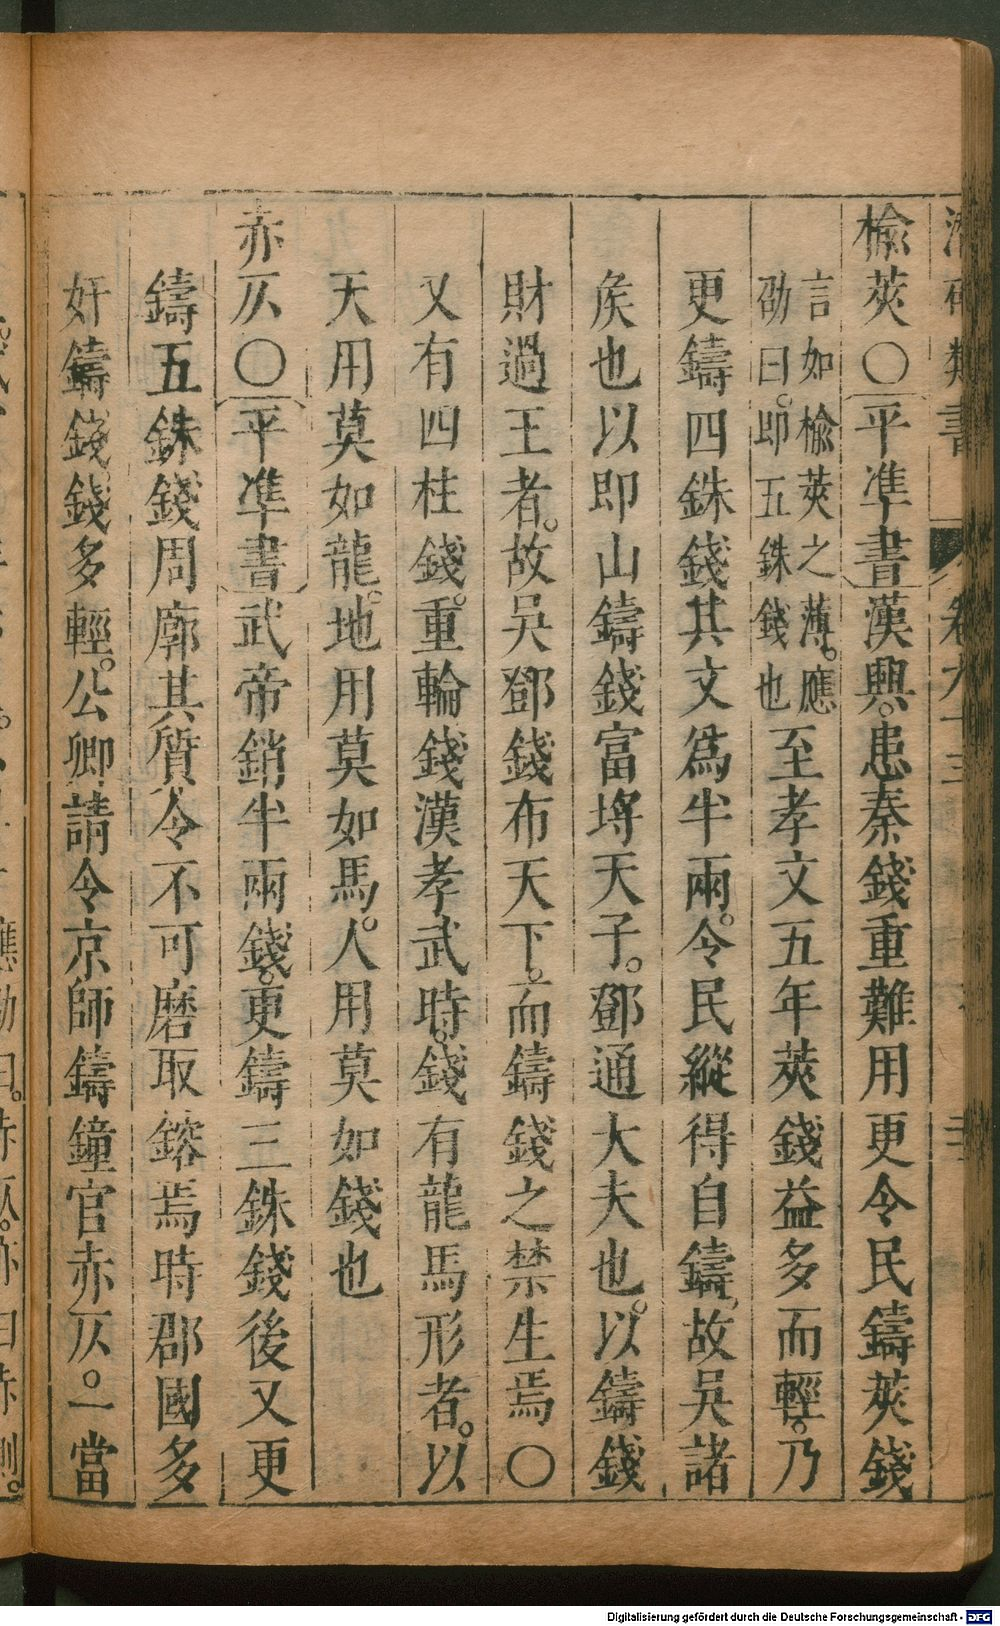 榆莢〇平準書漢興患秦錢重難用更令民鑄莢錢
言如榆莢之薄。應
劭曰。即五銖錢也
至孝文五年莢錢益多而輕。乃
更鑄四銖錢其文為半兩。令民縱得自鑄。故吳諸
矦也以即山鑄錢富埒天子。鄧通大夫也。以鑄錢
財過王者。故吳鄧錢布天下。而鑄錢之禁生焉〇
又有四柱錢。重輪錢漢孝武時。錢有龍馬形者。以
天用莫如龍。地用莫如馬。人用莫如錢也
赤仄〇平準書武帝銷半兩錢。更鑄三銖錢後又更
鑄五銖錢周廓其質令不可磨取鎔焉時郡國多
奸鑄錢。錢多輕。公卿請令京師鑄鐘官赤仄。一當
Digitalisierung gefördert durch die Deutsche Forschungsgemeinschaft - DFG